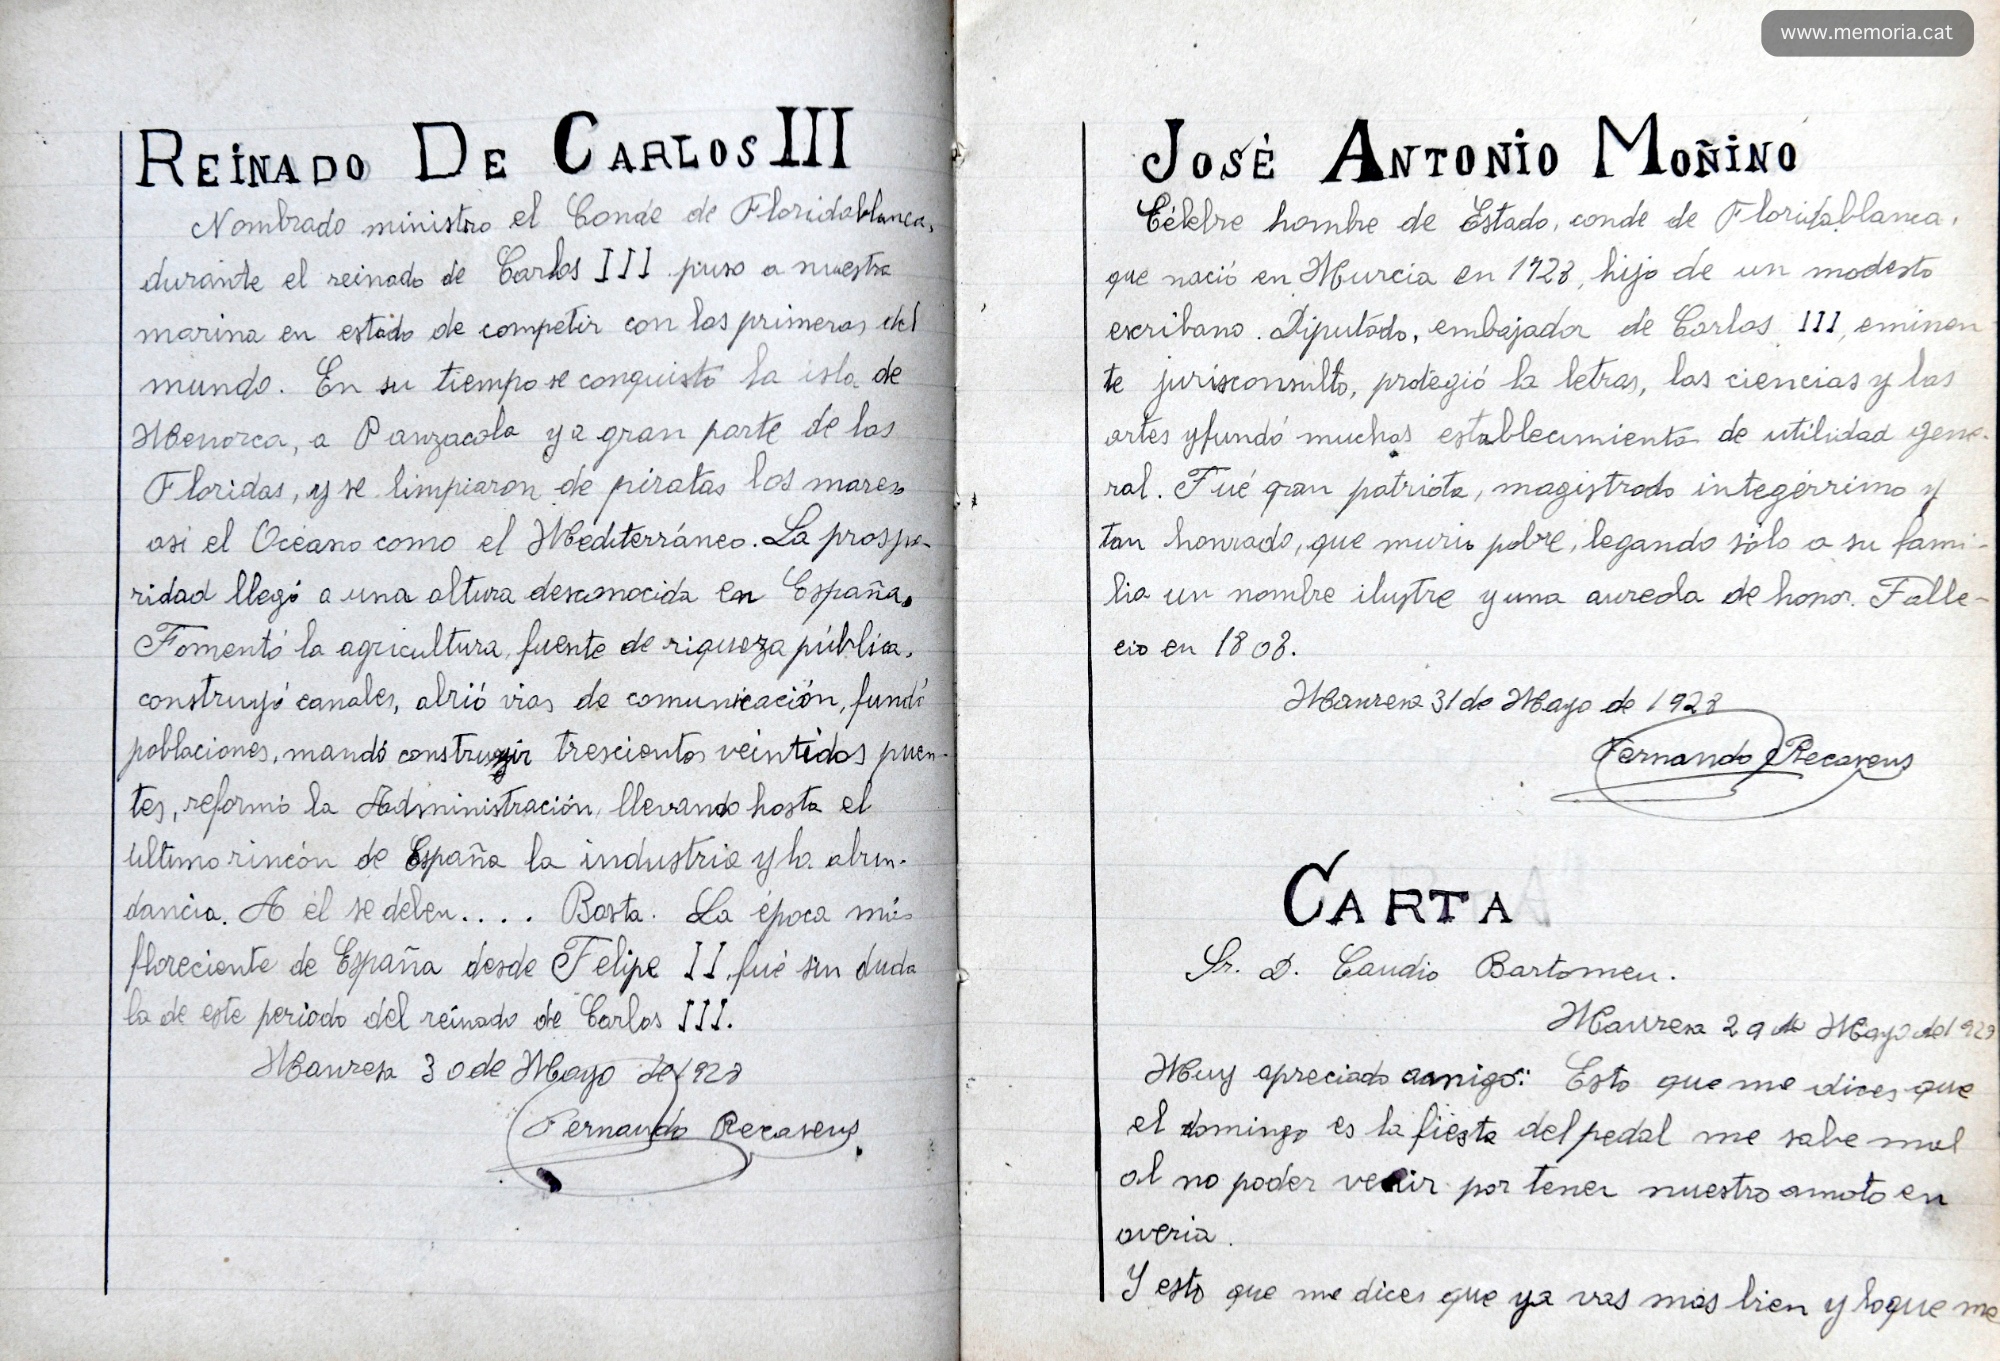 www.memoria.cat
REINADO DE CARLOS III
Nombrado ministro el Conde de Floridablanca,
durante el reinado de Carlos III puso a nuestra
marina en estado de competir con las primeras del
mundo. En su tiempo se conquistó la isla de
Menorca, a Panzacola y a gran parte de las
Floridas, y se limpiaron de piratas los mares
asi el Océano como el Mediterráneo. La prospe-
ridad llegó a una altura desconocida en España.
Fomentó la agricultura, fuente de riqueza pública,
construyó canales, abrió vias de comunicación, fundó
poblaciones, mandó construyir trescientos veintidos puen-
tes, reformó la Administración, llevando hasta el
último rincón de España la industria y la abun-
dancia. A él se deben.... Basta. La época más
floreciente de España desde Felipe II, fué sin duda
la de este periodo del reinado de Carlos III.
Manresa 30 de Mayo de 1928
Fernando Recasens
JOSÉ ANTONIO MOÑINO
Célebre hombre de Estado, conde de Floridablanca,
que nació en Murcia en 1728, hijo de un modesto
escribano. Diputado, embajador de Carlos III, eminen
te jurisconsulto, protegió la letras, las ciencias y las
artes y fundó muchos establecimiento de utilidad gene-
ral. Fué gran patriota, magistrado integérrimo y
tan honrado, que murio pobre, legando sólo a su fami-
lia un nombre ilustre y una aureola de honor. Falle-
cio en 1808.
Manresa 31 de Mayo de 1928
Fernando Recasens
CARTA
Sr. D. Caudio Bartomeu.
Manresa 29 de Mayo de 1928
Muy apreciado aamigo: Esto que me dices que
el domingo es la fiesta del pedal me sabe mal
al no poder venir por tener nuestro amoto en
averia.
Y esto que me dices que ya vas mas bien y lo que me